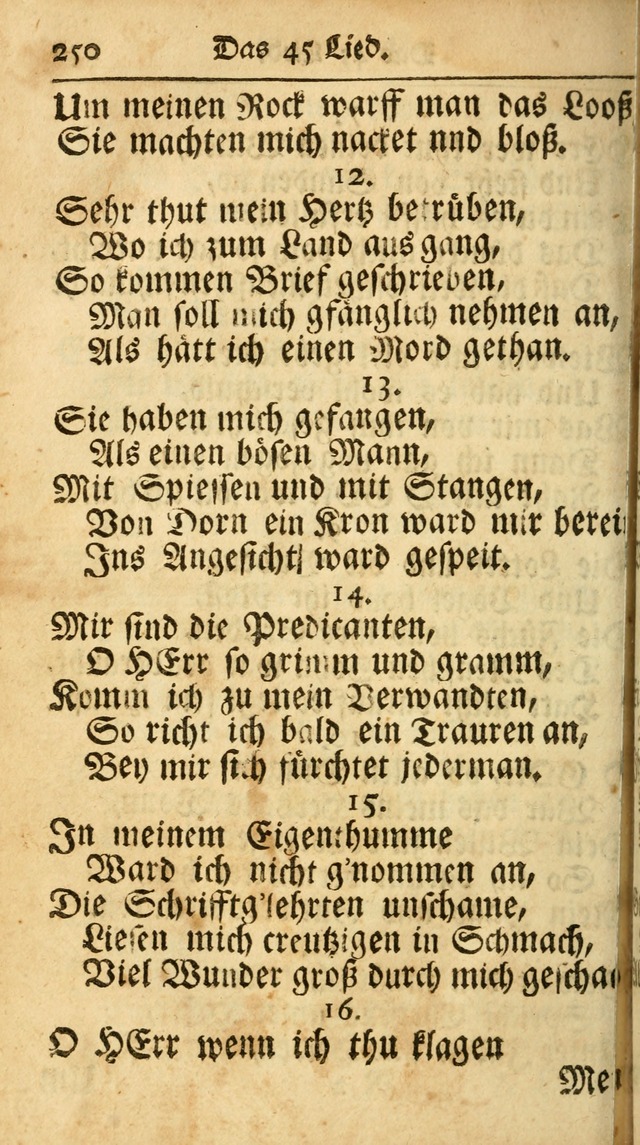 250 Das 45 Lied.
Um meinen Rock warff man das Looß
Sie machten mich nacket nnd bloß.
12.
Sehr thut mein Hertz betrüben,
Wo ich zum Land aus gang,
So kommen Brief geschrieben,
Man soll mich gfänglich nehmen an,
Als hätt ich einen Mord gethan.
13.
Sie haben mich gefangen,
Als einen bösen Mann,
Mit Spiessen und mit Stangen,
Von Dorn ein Kron ward mir berei
Ins Angesicht ward gespeit.
14.
Mir sind die Predicanten,
O HErr so grimm und gramm,
Komm ich zu mein Verwandten,
So richt ich bald ein Trauren an,
Bey mir sich fürchtet jederman.
15.
In meinem Eigenthumme
Ward ich nicht g'nommen an,
Die Schrifftg'lehrten unschame,
Liesen mich creutzigen in Schmach,
Viel Wunder groß durch mich gescha
16.
O HErr wenn ich thu klagen
Mei